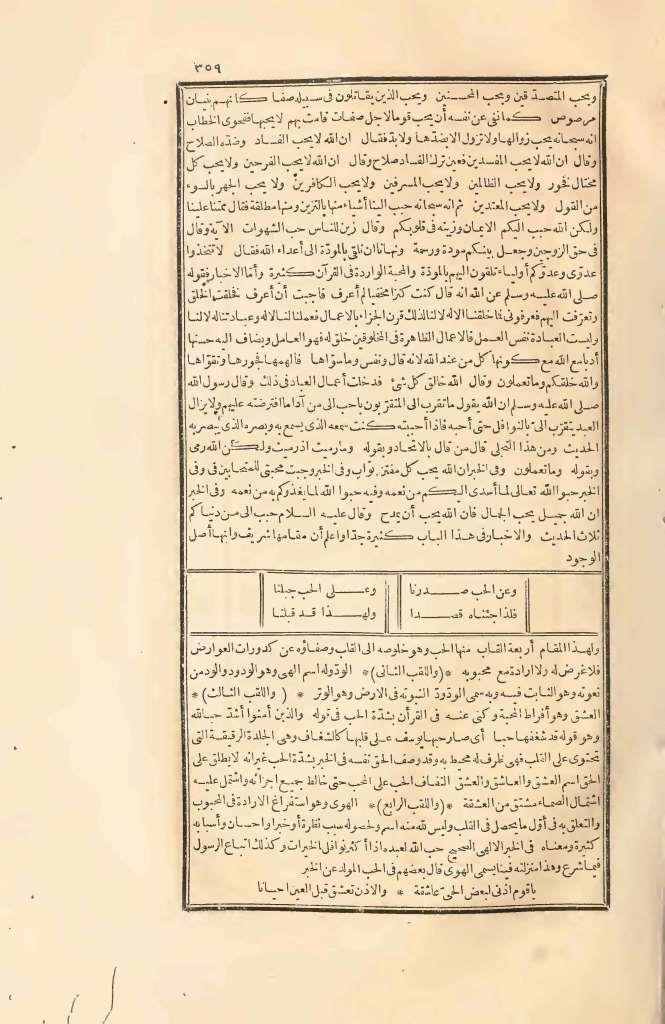 ٣٥٩
ويحب المتصدقين ويحب المحسنين ويحب الذين يقاتلون فى سبيله صفا كأنهم بنيان
مرصوص كما نفى عن نفسه أن يحب قوما لاجل صفات قامت بهم لا يحبها ففحوى الخطاب
انه سبحانه يحب زوالها ولا تزول الا بضدها ولابد فقال ان الله لا يحب الفساد وضده الصلاح
وقال ان الله لا يحب المفسدين فعين ترك الفساد صلاح وقال ان الله لا يحب الفرحين ولا يحب كل
مختال فخور ولا يحب الظالمين ولا يحب المسرفين ولا يحب الكافرين ولا يحب الجهر بالسوء
من القول ولا يحب المعتدين ثم انه سبحانه حبب الينا أشياء منها بالتزيين ومنها مطلقة فقال ممتنا علينا
ولكن الله حبب اليكم الايمان وزينه فى قلوبكم وقال زين للناس حب الشهوات الآية وقال
فى حق الزوجين وجعل بينكم مودة ورحمة ونهانا ان نلقى بالمودة الى أعداء الله فقال لا تتخذوا
عدوى وعدوكم أولياء تلقون اليهم بالمودة والمحبة الواردة فى القرآن كثيرة وأما الاخبار فقوله
صلى الله عليه وسلم عن الله انه قال كنت كنزا مخفيا لم أعرف فاحببت أن أعرف فخلقت الخلق
وتعرفت اليهم فعرفونى فما خلقنا الا له لا لنا لذلك قرن الجزاء بالاعمال فعملنا لنا لا له وعبادتنا له لا لنا
وليست العبادة نفس العمل فالاعمال الظاهرة فى المخلوقين خلق له فهو العامل ويضاف اليه حسنها
أدبا مع الله مع كونها كل من عند الله لانه قال ونفس وما سواها فالهمها فجورها وتقواها
والله خلقكم وما تعملون وقال الله خالق كل شئ فدخلت أعمال العباد فى ذلك وقال رسول الله
صلى الله عليه وسلم ان الله يقول ما تقرب الى المتقربون باحب الى من آداء ما افترضته عليهم ولا يزال
العبد يتقرب الى بالنوافل حتى أحبه فاذا أحببته كنت سمعه الذى يسمع به وبصره الذى يبصر به
الحديث ومن هذا التجلى قال من قال بالاتحاد وبقوله وما رميت اذ رميت ولكن الله رمى
وبقوله وما تعملون وفى الخبر ان الله يحب كل مفتن تواب وفى الخبر وجبت محبتى للمتحابين فى وفى
الخبر حبوا الله تعالى لما أسدى اليكم من نعمه وفيه حبوا الله لما يغذوكم به من نعمه وفى الخبر
ان الله جميل يحب الجمال فان الله يحب أن يمدح وقال عليه السلام حبب الى من دنياكم
ثلاث الحديث والاخبار فى هذا الباب كثيرة جدا واعلم أن مقامها شريف وانها أصل
الوجود
وعن الحب صدرنا وعلى الحب جبلنا
فلذا جئناه قصدا ولهذا قد قبلنا
ولهذا المقام أربعة القاب منها الحب وهو خلوصه الى القلب وصفاؤه عن كدورات العوارض
فلا غرض له ولا ارادة مع محبوبه * (واللقب الثانى) * الود وله اسم الهى وهو الودود والود من
نعوته وهو الثابت فيه وبه سمى الود ودا لثبوته فى الارض وهو الوتر * ( واللقب الثالث) *
العشق وهو أفراط المحبة وكنى عنه فى القرآن بشدة الحب فى قوله والذين آمنوا أشد حبا لله
وهو قوله قد شغفها حبا أى صار حبها يوسف على قلبها كالشغاف وهى الجلدة الرقيقة التى
تحتوى على القلب فهى ظرف له محيط به وقد وصف الحق نفسه فى الخبر بشدة الحب غير انه لا يطلق على
الحق اسم العشق والعاشق والعشق التفاف الحب على المحب حتى خالط جميع اجزائه واشتمل عليه
اشتمال الصماء مشتق من العشقة * (واللقب الرابع) * الهوى وهو استفراغ الارادة فى المحبوب
والتعلق به فى أول ما يحصل فى القلب وليس لله منه اسم ولحصوله سبب نظرة أو خبر او احسان وأسبابه
كثيرة ومعناه فى الخبر الالهى الصحيح حب الله لعبده اذا أكثر نوافل الخيرات وكذلك اتباع الرسول
فيما شرع وهذا منزلته فينا يسمى الهوى قال بعضهم فى الحب المولد عن الخبر
يا قوم اذنى لبعض الحى عاشقة * والاذن تعشق قبل العين احيانا